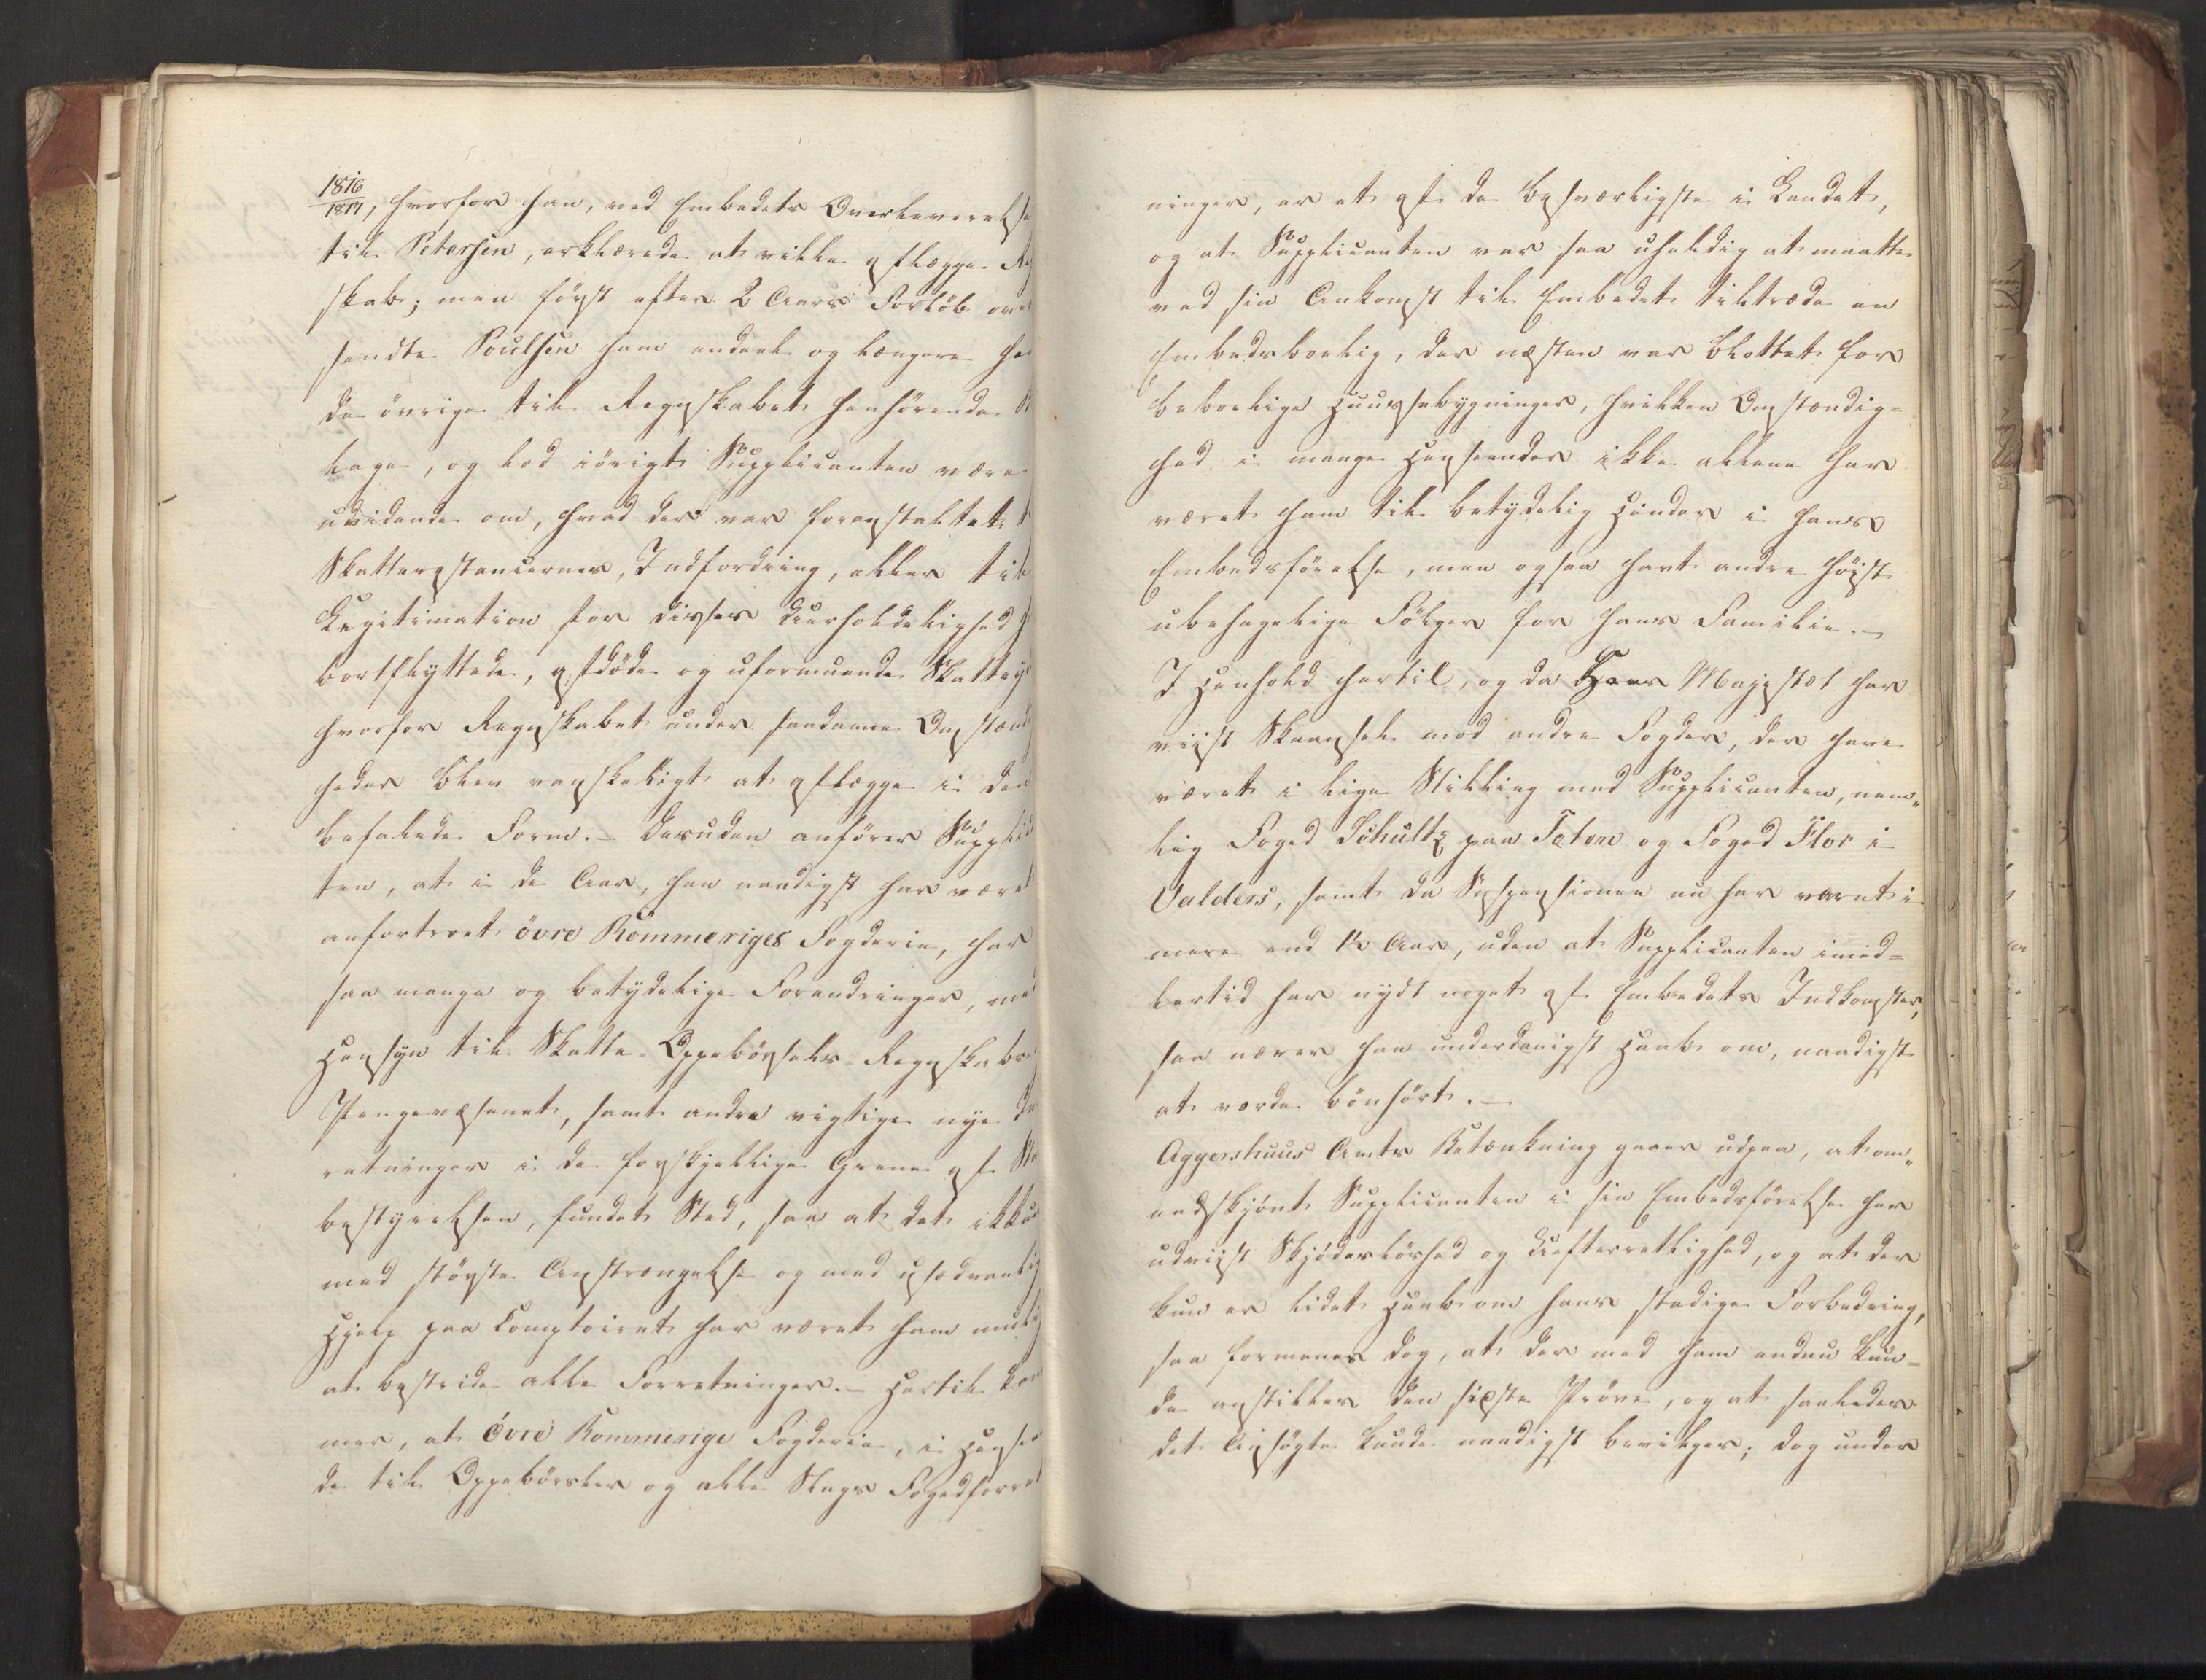 1816
1817, hvorfor han, ved Embedets Overleverelse
til Petersen, erklærede at ville aflægge Reg
skab; men først efter 2 Aars Forløb over
sendte Poulsen ham endeel og længere hen
de övrige til Regnskabet henhørende Bi
lage, og lod iövrigt Supplicanten være
uvidende om, hvad der var foranstaltet t
Skatterestancernes Inddrivning, eller til
Legitimation for disses Uerholdelighed h
bortflyttede, afdöde og uformuende Skattey
hvorfor Regnskabet under saadanne Omstænd
heder blev vanskeligt at aflægge i den
befalede Form. – Desuden anfører Supplic
ten, at i de Aar, han naadigst har været
anfortroet övre Rommeriges Fogderie, har
saa mange og betydelige Forandringer, med
Hensyn til Skatte-Oppebörsels-Regnskabs-
Pengevæsenet, samt andre vigtige nye
retninger i de forskjellige Grene af Sta
bestyrelsen, fundet Sted, saa at det ikkun
med störste Anstrængelse og med usædvanlig
Hjelp paa Comptoiret har været ham muli
at bestride alle Forretninger. – Hertil kom
mer, at övre Rommerige Fogderie, i Hensee
de til Oppebörsler og alle Slags Fogedforret
ninger, er et af de besværligste i Landet,
og at Supplicanten var saa uheldig at maatte
ved sin Ankomst til Embedet tiltræde en
Embedsbolig, der næsten var blottet for
beboelige Huusebygninger, hvilken Omstændig=
hed i mange Henseender ikke allene har
været ham til betydelig Hinder i hans
Embedsförelse, men ogsaa havt andre höist
ubehagelige Fölger for hans Familie. –
I Henhold hertil, og da Hans Majestæt har
viist Skaansel mod andre Fogder, der have
været i lige Stilling med Supplicanten, nem„
lig Foged Schultz paa Toten og Foged Flor i
Valders, samt da Suspensionen nu har varet i
mere end 1½ Aar, uden at Supplicanten imid=
lertid har nydt noget af Embedets Indkomster,
saa nærer han underdanigst Haab om, naadigst
at vorde bönhört. –
Aggershuus Amts Betænkning gaaer udpaa, at om„
endskjönt Supplicanten i sin Embedsförelse har
udviist Skjödeslöshed og Uefterretlighed, og at der
kun er lidet Haab om hans stadige Forbedring,
saa formenes dog, at der med ham endnu kun=
de anstilles den sidste Pröve, og at saaledes
det Ansögte kunde naadigst bevilges; dog under